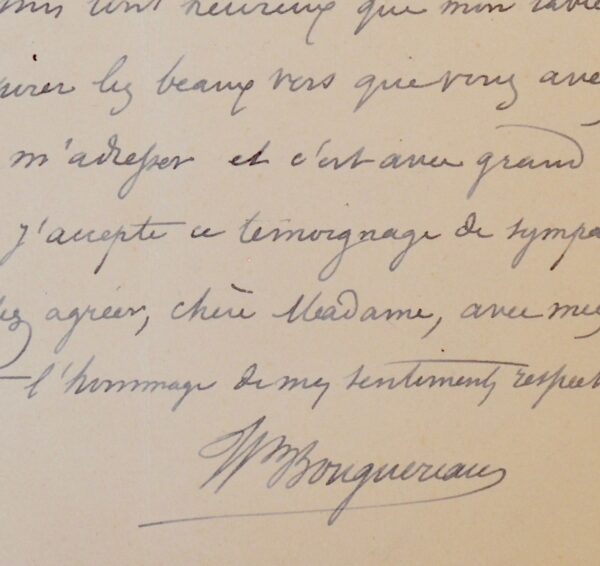 suis tout heureux que mon table
pirer les beaux vers que vous ave
m'adresser et c'est avec grand
j'accepte ce témoignage de sympa
agréer, chère Madame, avec mes
l'hommage de mes sentiments respect
Wm Bouguereau